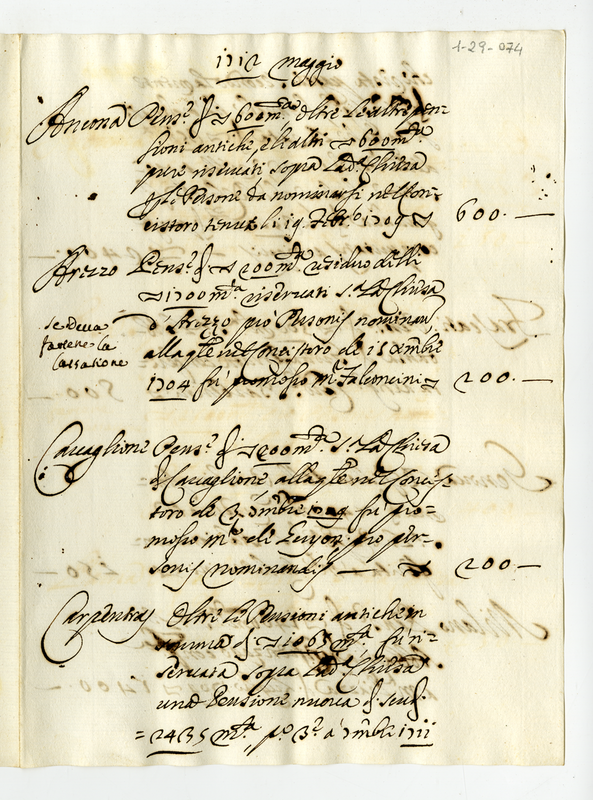 1-29-074
1712 maggio
Ancona Pens.e di ▽ 600 m.ta oltre le altre pen-
sioni antiche, e li altri ▽ 600 m.ta
pure riservati sopra la d.a Chiesa
p li Persone da nominarsi nel Con-
cistoro tenuto li 19. Febr.o 1709 ▽ 600. —
Arezzo Pens.e di ▽ 200 m.ta residuo delli
▽ 1700 m.ta riservati s.a la Chiesa
d'Arezzo pro Personis nominan.
alla q.le nel Concistoro de 15 Xmbre
1704 fu promosso m.r Falconcini ▽ 200. —
se deva
farsene la
cassatione
Cavaglione Pens.e di ▽ 200 m.ta s.a la Chiesa
di Cavaglione alla q.le nel Concis-
toro de 3 9mbre 1709 fu pro-
mosso m.r de Guyon pro per-
sonis nominandis — ▽ 200 —
Carpentras Oltre le Pensioni antiche in
somma di ▽ 1065 m.ta fu ri-
servata sopra la d.a Chiesa
una Pensione nuova di scudi
= 2435 m.ta, p.o 3.e à 9mbre 1711